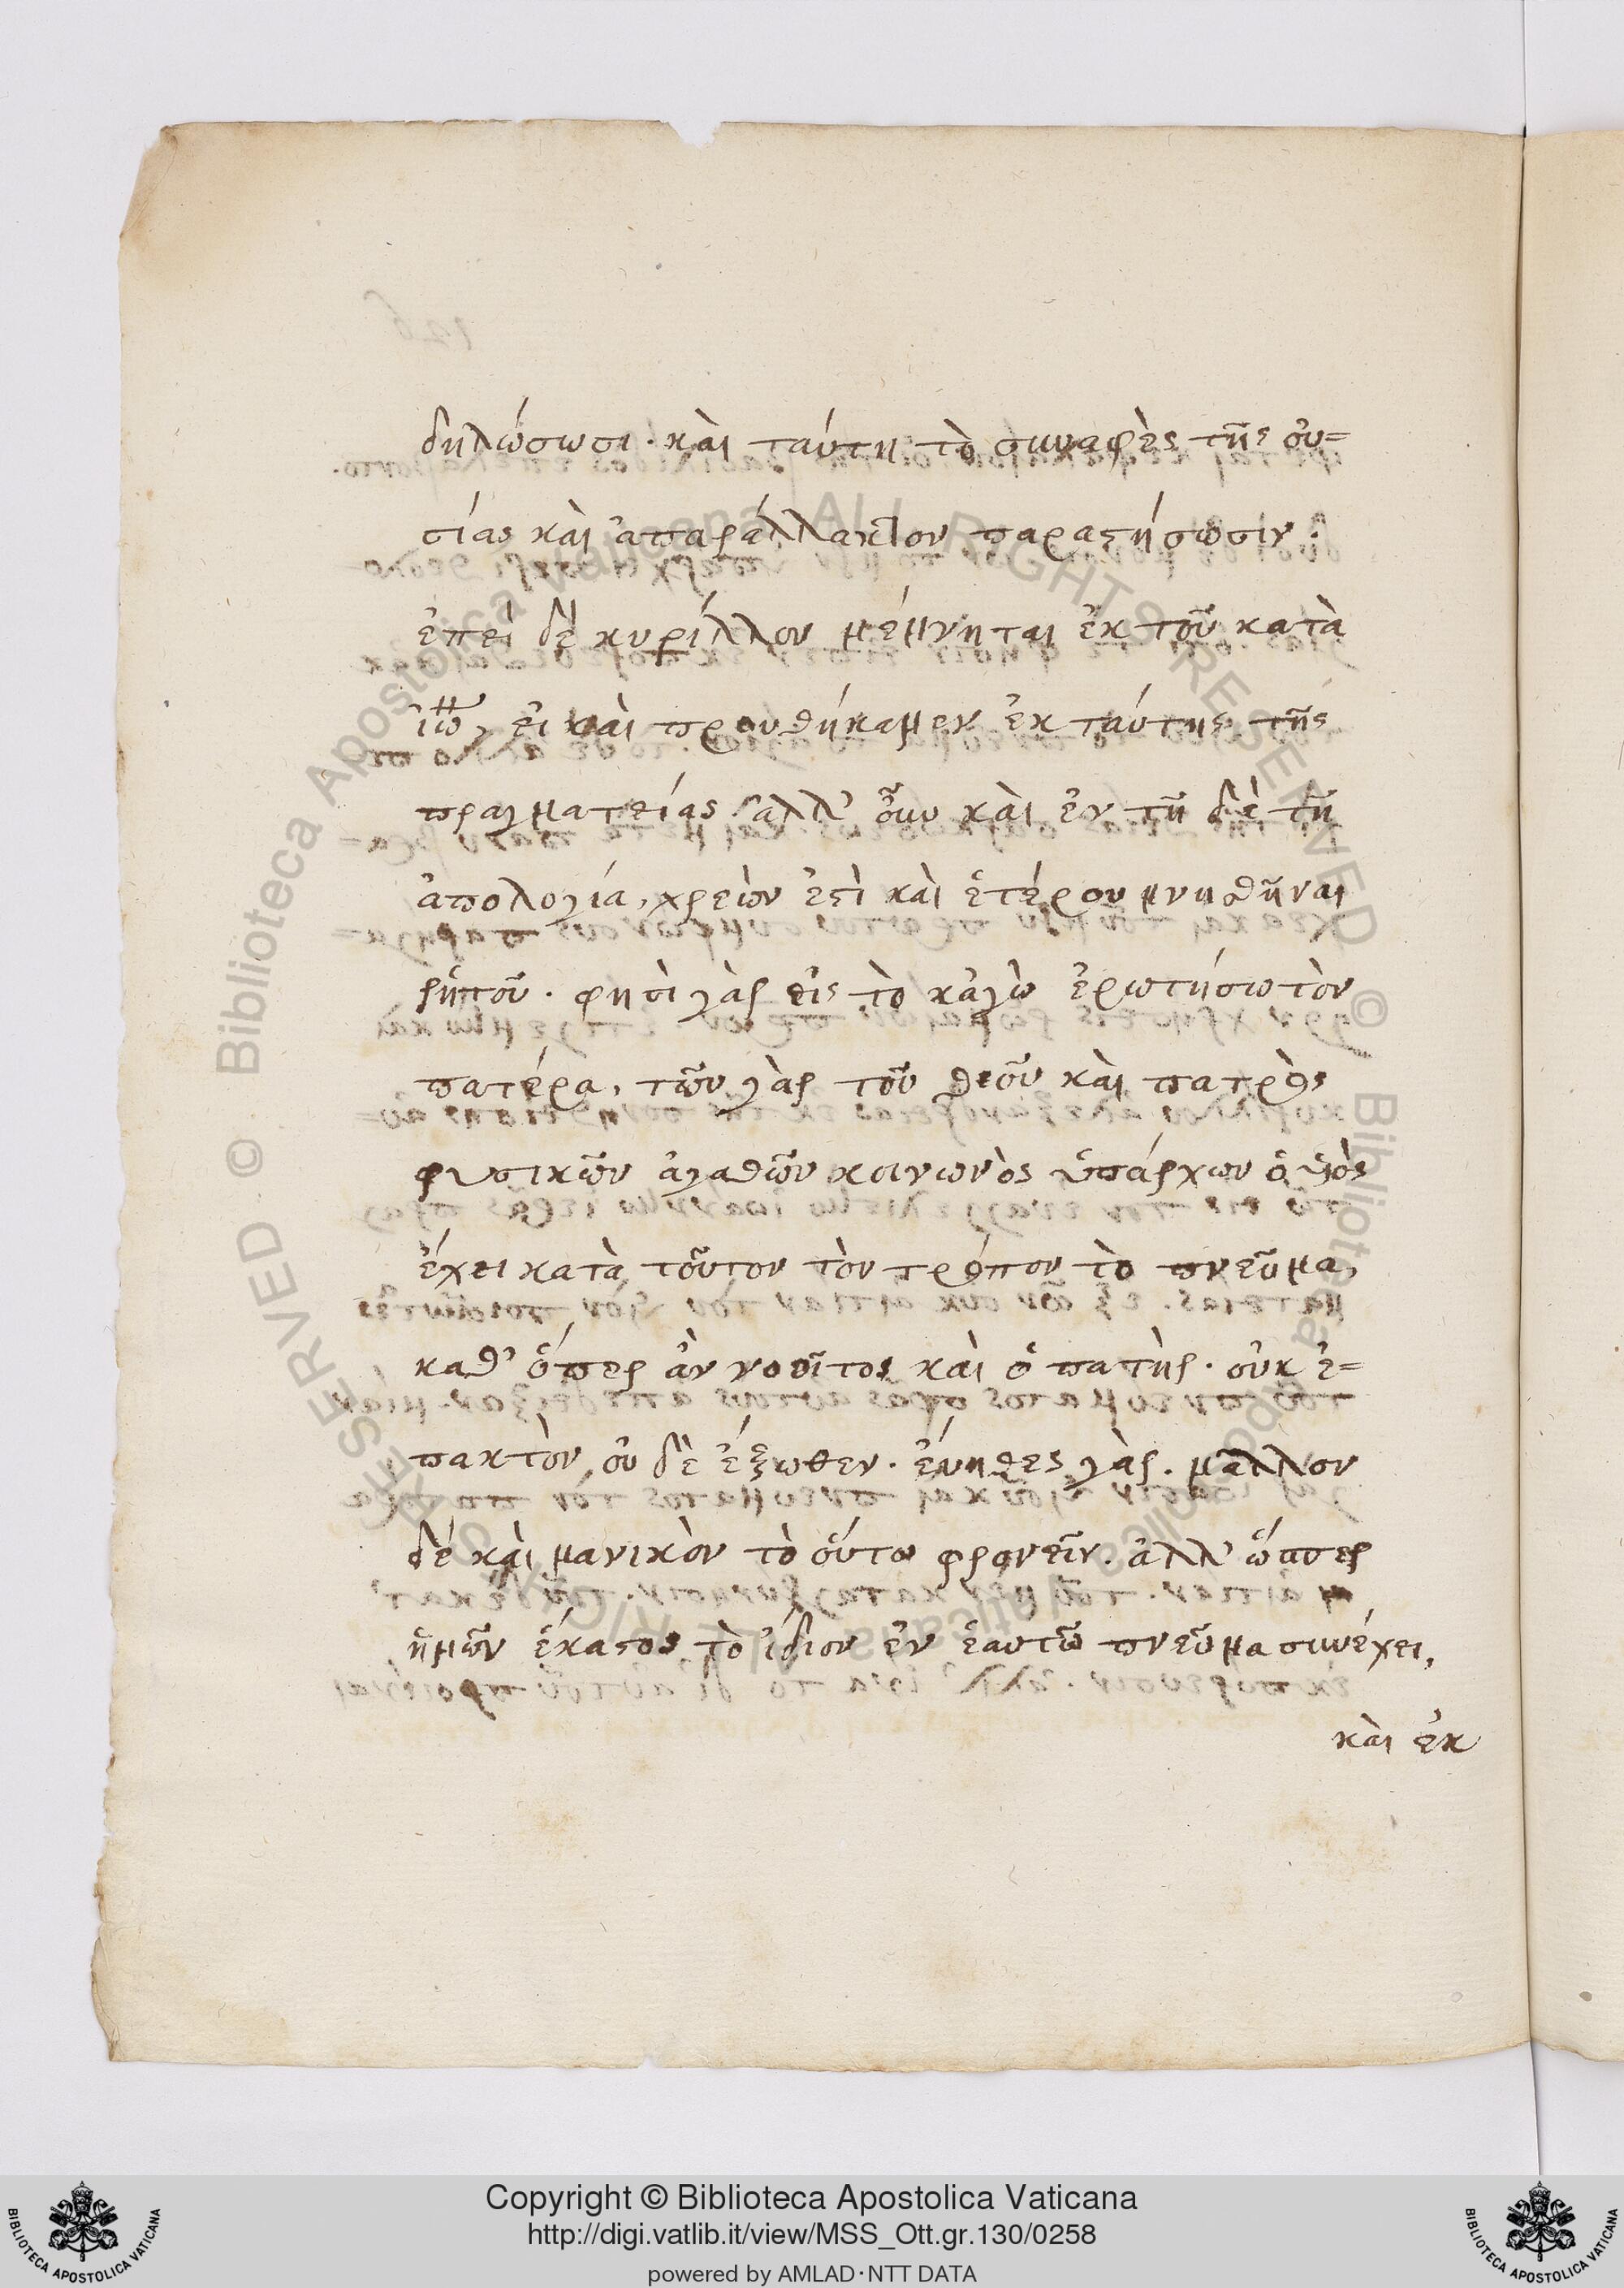 δηλώσωσι· καὶ ταύτη τὸ συναφὲς τῆς οὐ=
σίας καὶ ἀπαράλλακτον παραστήσωσιν·
ἐπεὶ δὲ κυρίλλου μέμνηται ἐκ τοῦ κατὰ
ἰω, εἰ καὶ προυθήκαμεν ἐκ ταύτης τῆς
πραγματείας ἀλλ' ὅμως καὶ ἐν τῆ δὲ τῆ
ἀπολογία, χρεὼν ἐστὶ καὶ ἑτέρου μνησθῆναι
ῥητοῦ. φησὶ γὰρ εἰς τὸ κἀγὼ ἐρωτήσω τὸν
πατέρα, τῶν γὰρ τοῦ θεοῦ καὶ πατρὸς
φυσικῶν ἀγαθῶν κοινωνὸς ὑπάρχων ὁ υἱὸς
ἔχει κατὰ τοῦτον τὸν τρόπον τὸ πνεῦμα,
καθ' ὅπερ ἂν νοοῖτο καὶ ὁ πατὴρ. οὐκ ἐ=
πακτὸν, οὐ δὲ ἔξωθεν. εὔηθες γὰρ. μᾶλλον
δὲ καὶ μανικὸν τὸ οὕτω φρονεῖν. ἀλλ' ὥσπερ
ἡμῶν ἕκαστος τὸ ἴδιον ἐν ἑαυτῶ πνεῦμα συνέχει,
καὶ ἐκ
Copyright © Biblioteca Apostolica Vaticana
http://digi.vatlib.it/view/MSS_Ott.gr.130/0258
powered by AMLAD·NTT DATA